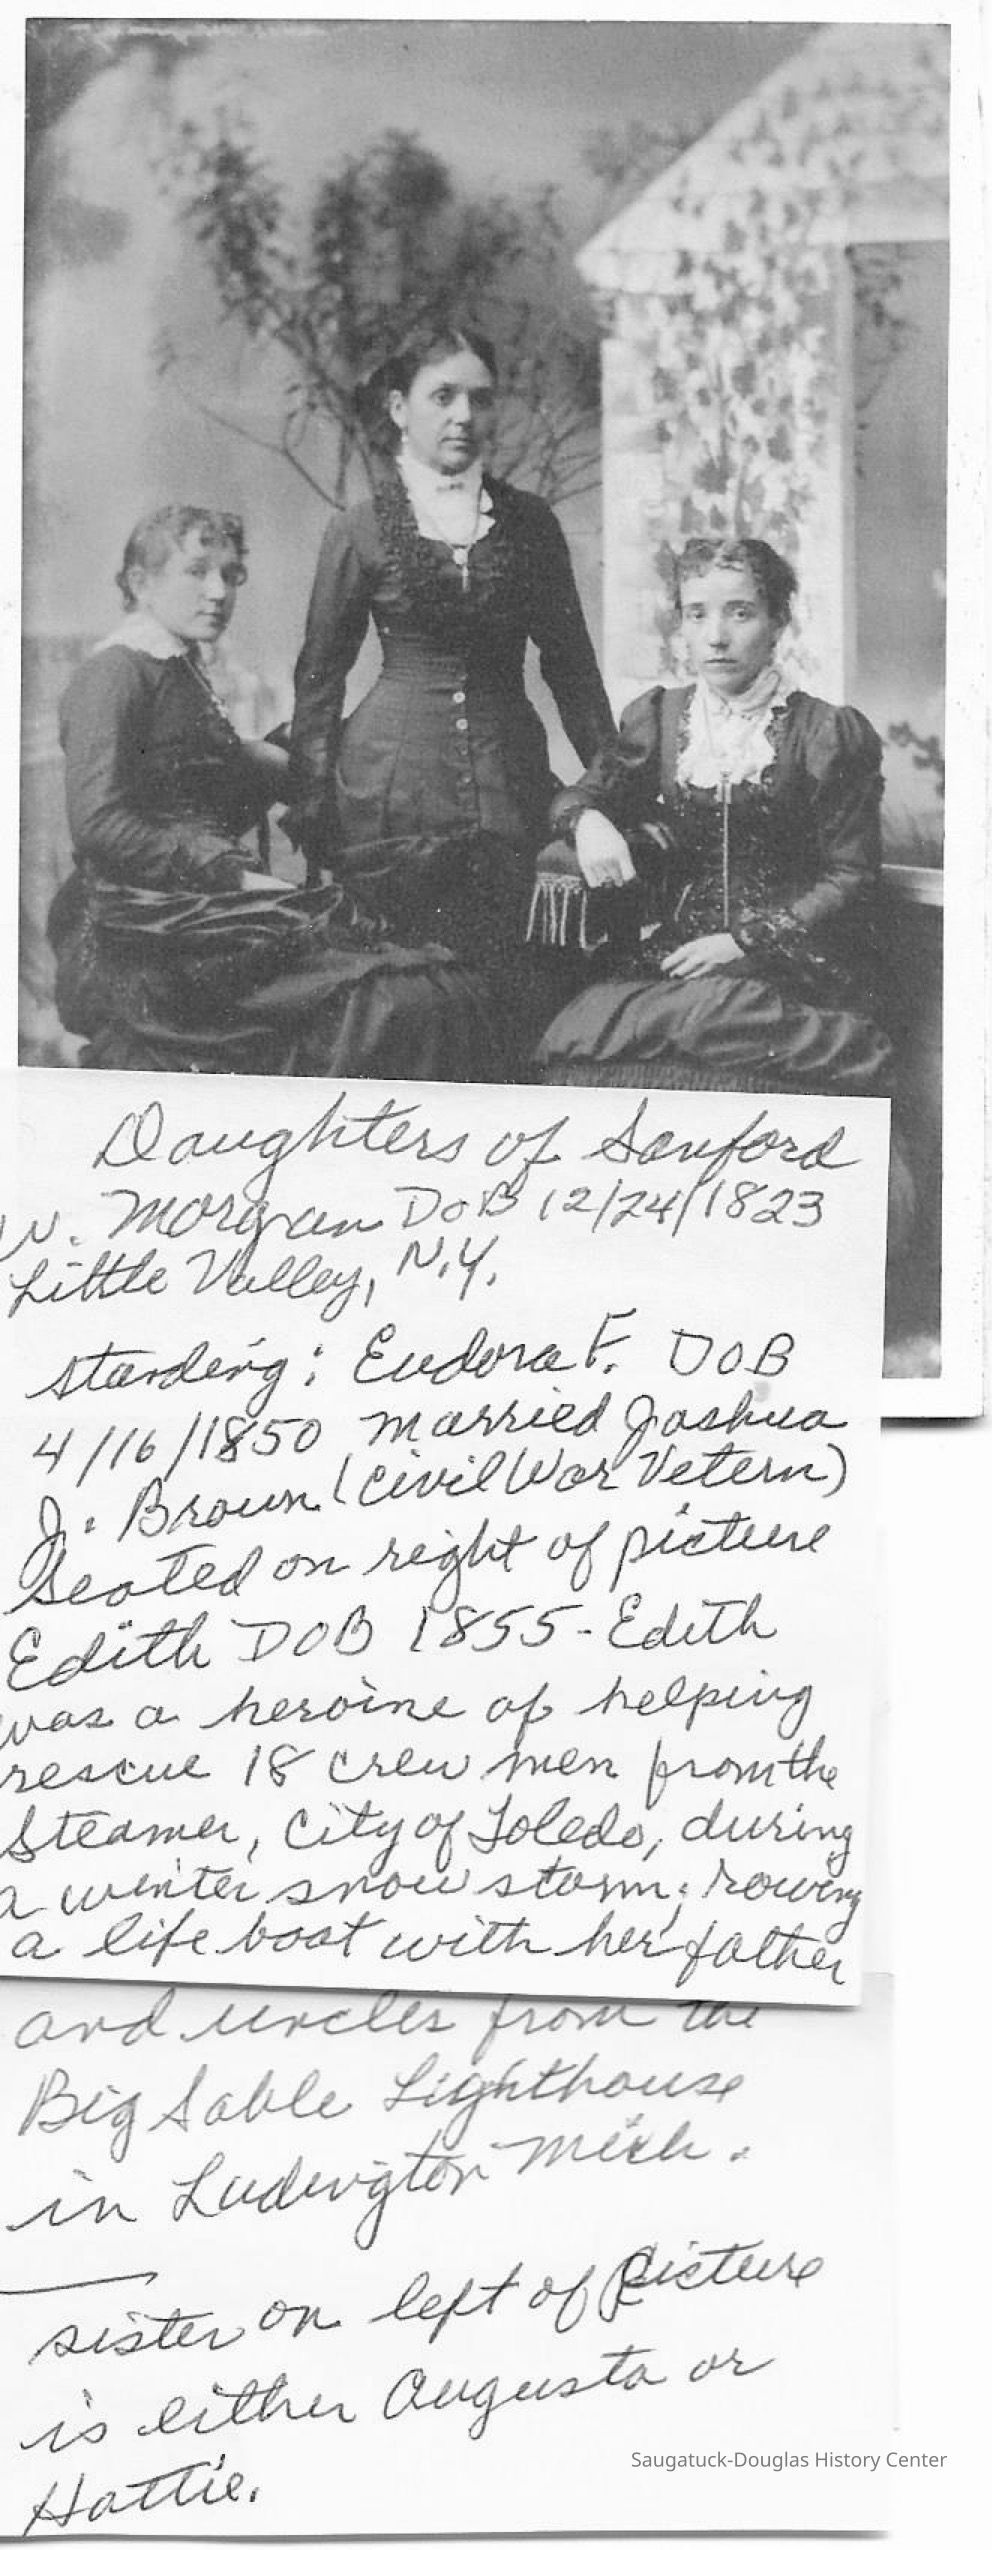 Daughters of Sanford
W. Morgan DoB 12/24/1823
Little Valley, N.Y.
standing: Eudora F. DoB
4/16/1850 married Joshua
J. Brown (Civil War Vetern)
Seated on right of picture
Edith DOB 1855 - Edith
was a heroine of helping
rescue 18 crew men from the
Steamer, City of Toledo, during
a winter snow storm; rowing
a life boat with her father
and uncles from the
Big Sable Lighthouse
in Ludington Mich.
sister on left of picture
is either Augusta or
Hattie.
Saugatuck-Douglas History Center